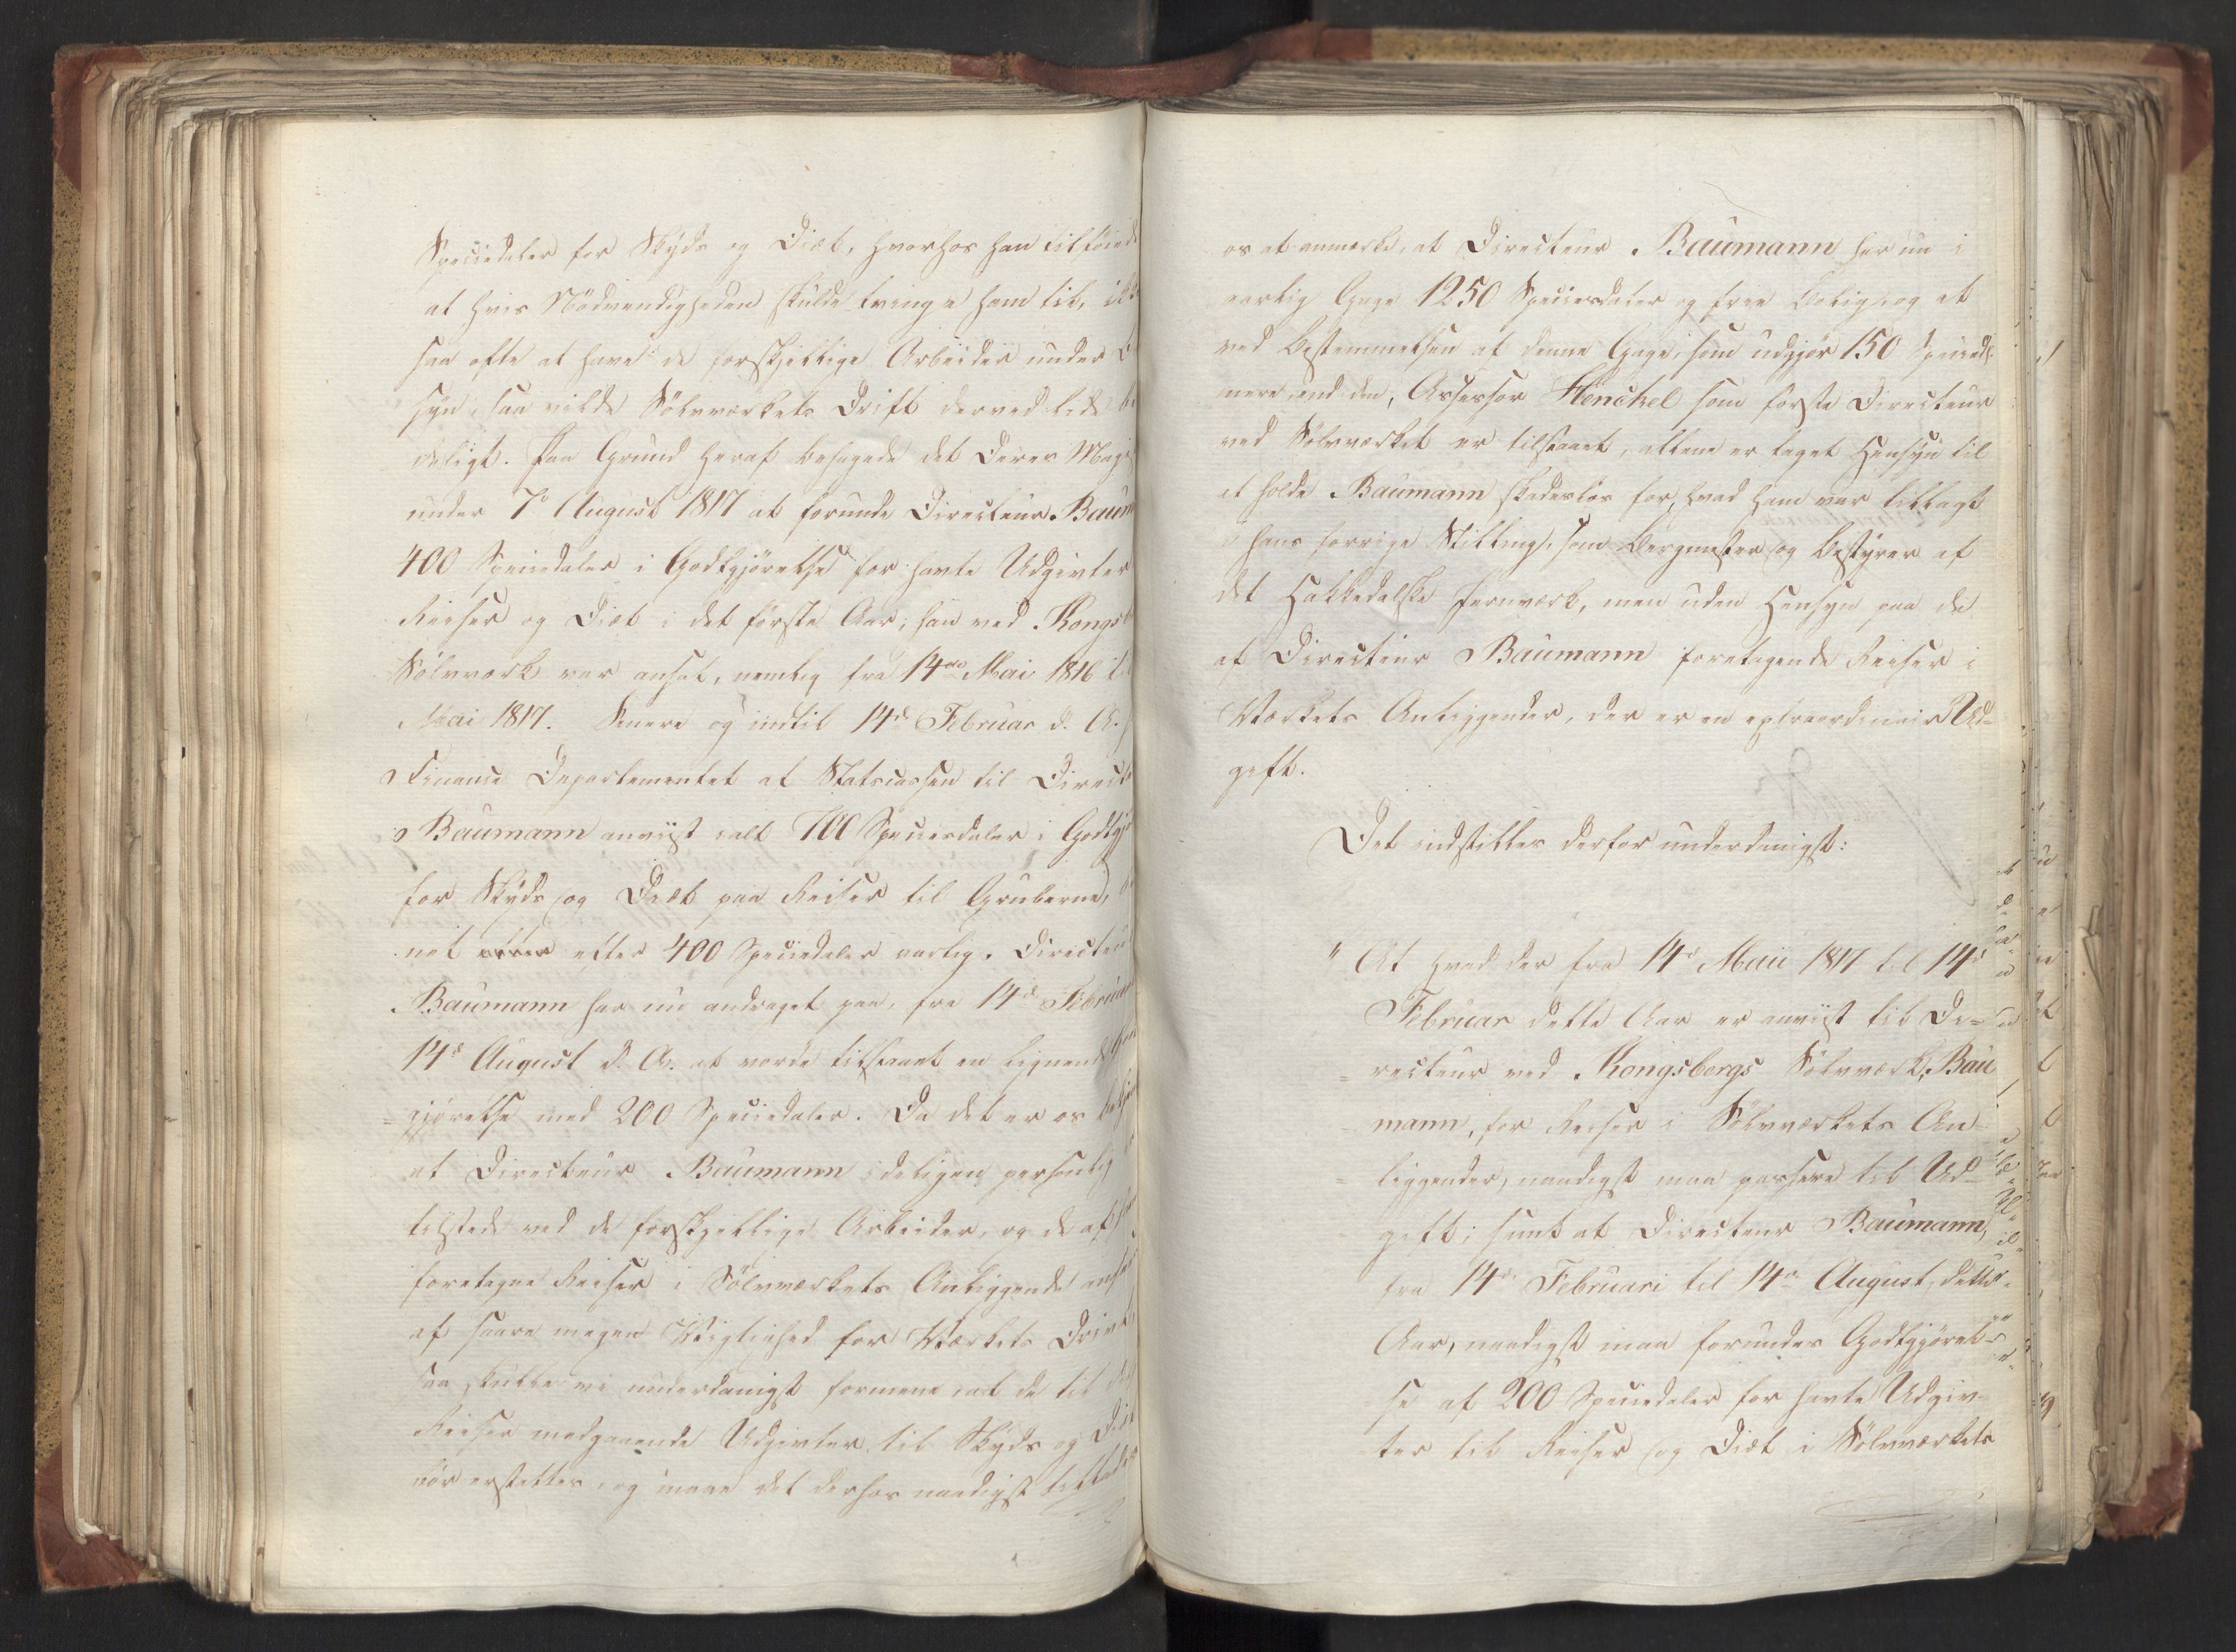 Speciedaler for Skyds og Diæt, hvorhos han tilföiede
at hvis Nödvendigheden skulde tvinge ham til, ikke
saa ofte at have de forskjellige Arbeider under
syn, saa vilde Sölvværkets Drift derved lide
deligt. Paa Grund heraf behagede det Deres Maje
under 7de August 1817 at forunde Directeur Baum
400 Speciedaler i Godtgjörelse for havte Udgivter
Reiser og Diæt i det förste Aar, han ved Kongsb
Sölvværk var ansat, nemlig fra 14de Mai 1816 til
Mai 1817. Senere og indtil 14de Februar d. A.
Finance Departementet af Statscassen til Direct
Baumann anviist ialt 700 Speciesdaler i Godtgjö
for Skyds og Diæt paa Reiser til Gruberne,
net efter 400 Speciedaler aarlig. Directeu
Baumann har nu andraget paa, fra 14de Februar
14de August d. A. at vorde tilstaaet en lignende
gjörelse med 200 Speciedaler. Da det er os bekj
at Directeur Baumann ideligen personlig
tilstede ved de forskjellige Arbeider, og de af
foretagne Reiser i Sölvværkets Anliggende anse
af saare megen Vigtighed for Værkets Drivt,
saa skulle vi underdanigst formene, at de til
Reiser medgaaende Udgivter til Skyds og Diæt
bör erstattes, og maae det derhos naadigst tillades
os at anmærke, at Directeur Baumann har nu i
aarlig Gage 1250 Speciesdaler og frie Bolig, og at
ved Bestemmelsen af denne Gage, som udgjör 150 Speciedlr
mere, end den, Assessor Henckel som förste Directeur
ved Sölvværket er tilstaaet, allene er taget Hensyn til
at holde Baumann skadeslös for, hvad ham var tillagt
i hans forrige Stilling, som Bergmester og Bestyrer af
det Hakkedalske Jernværk, men uden Hensyn paa de
af Directeur Baumann foretagende Reiser i
Værkets Anliggender, der er en extraordinair Ud=
gift.
Det indstilles derfor underdanigst:
" At hvad der fra 14de Maii 1817 til 14de
Februar dette Aar er anviist til Di=
=recteur ved Kongsbergs Sölvværk, Bau
mann, for Reiser i Sölvværkets An=
=liggender, naadigst maa passere til Ud=
gift; samt at Directeur Baumann,
fra 14de Februari til 14de August, dette
Aar, naadigst maa forundes Godtgjörel=
se af 200 Speciedaler for havte Udgiv=
ter til Reiser og Diæt i Sölvværkets